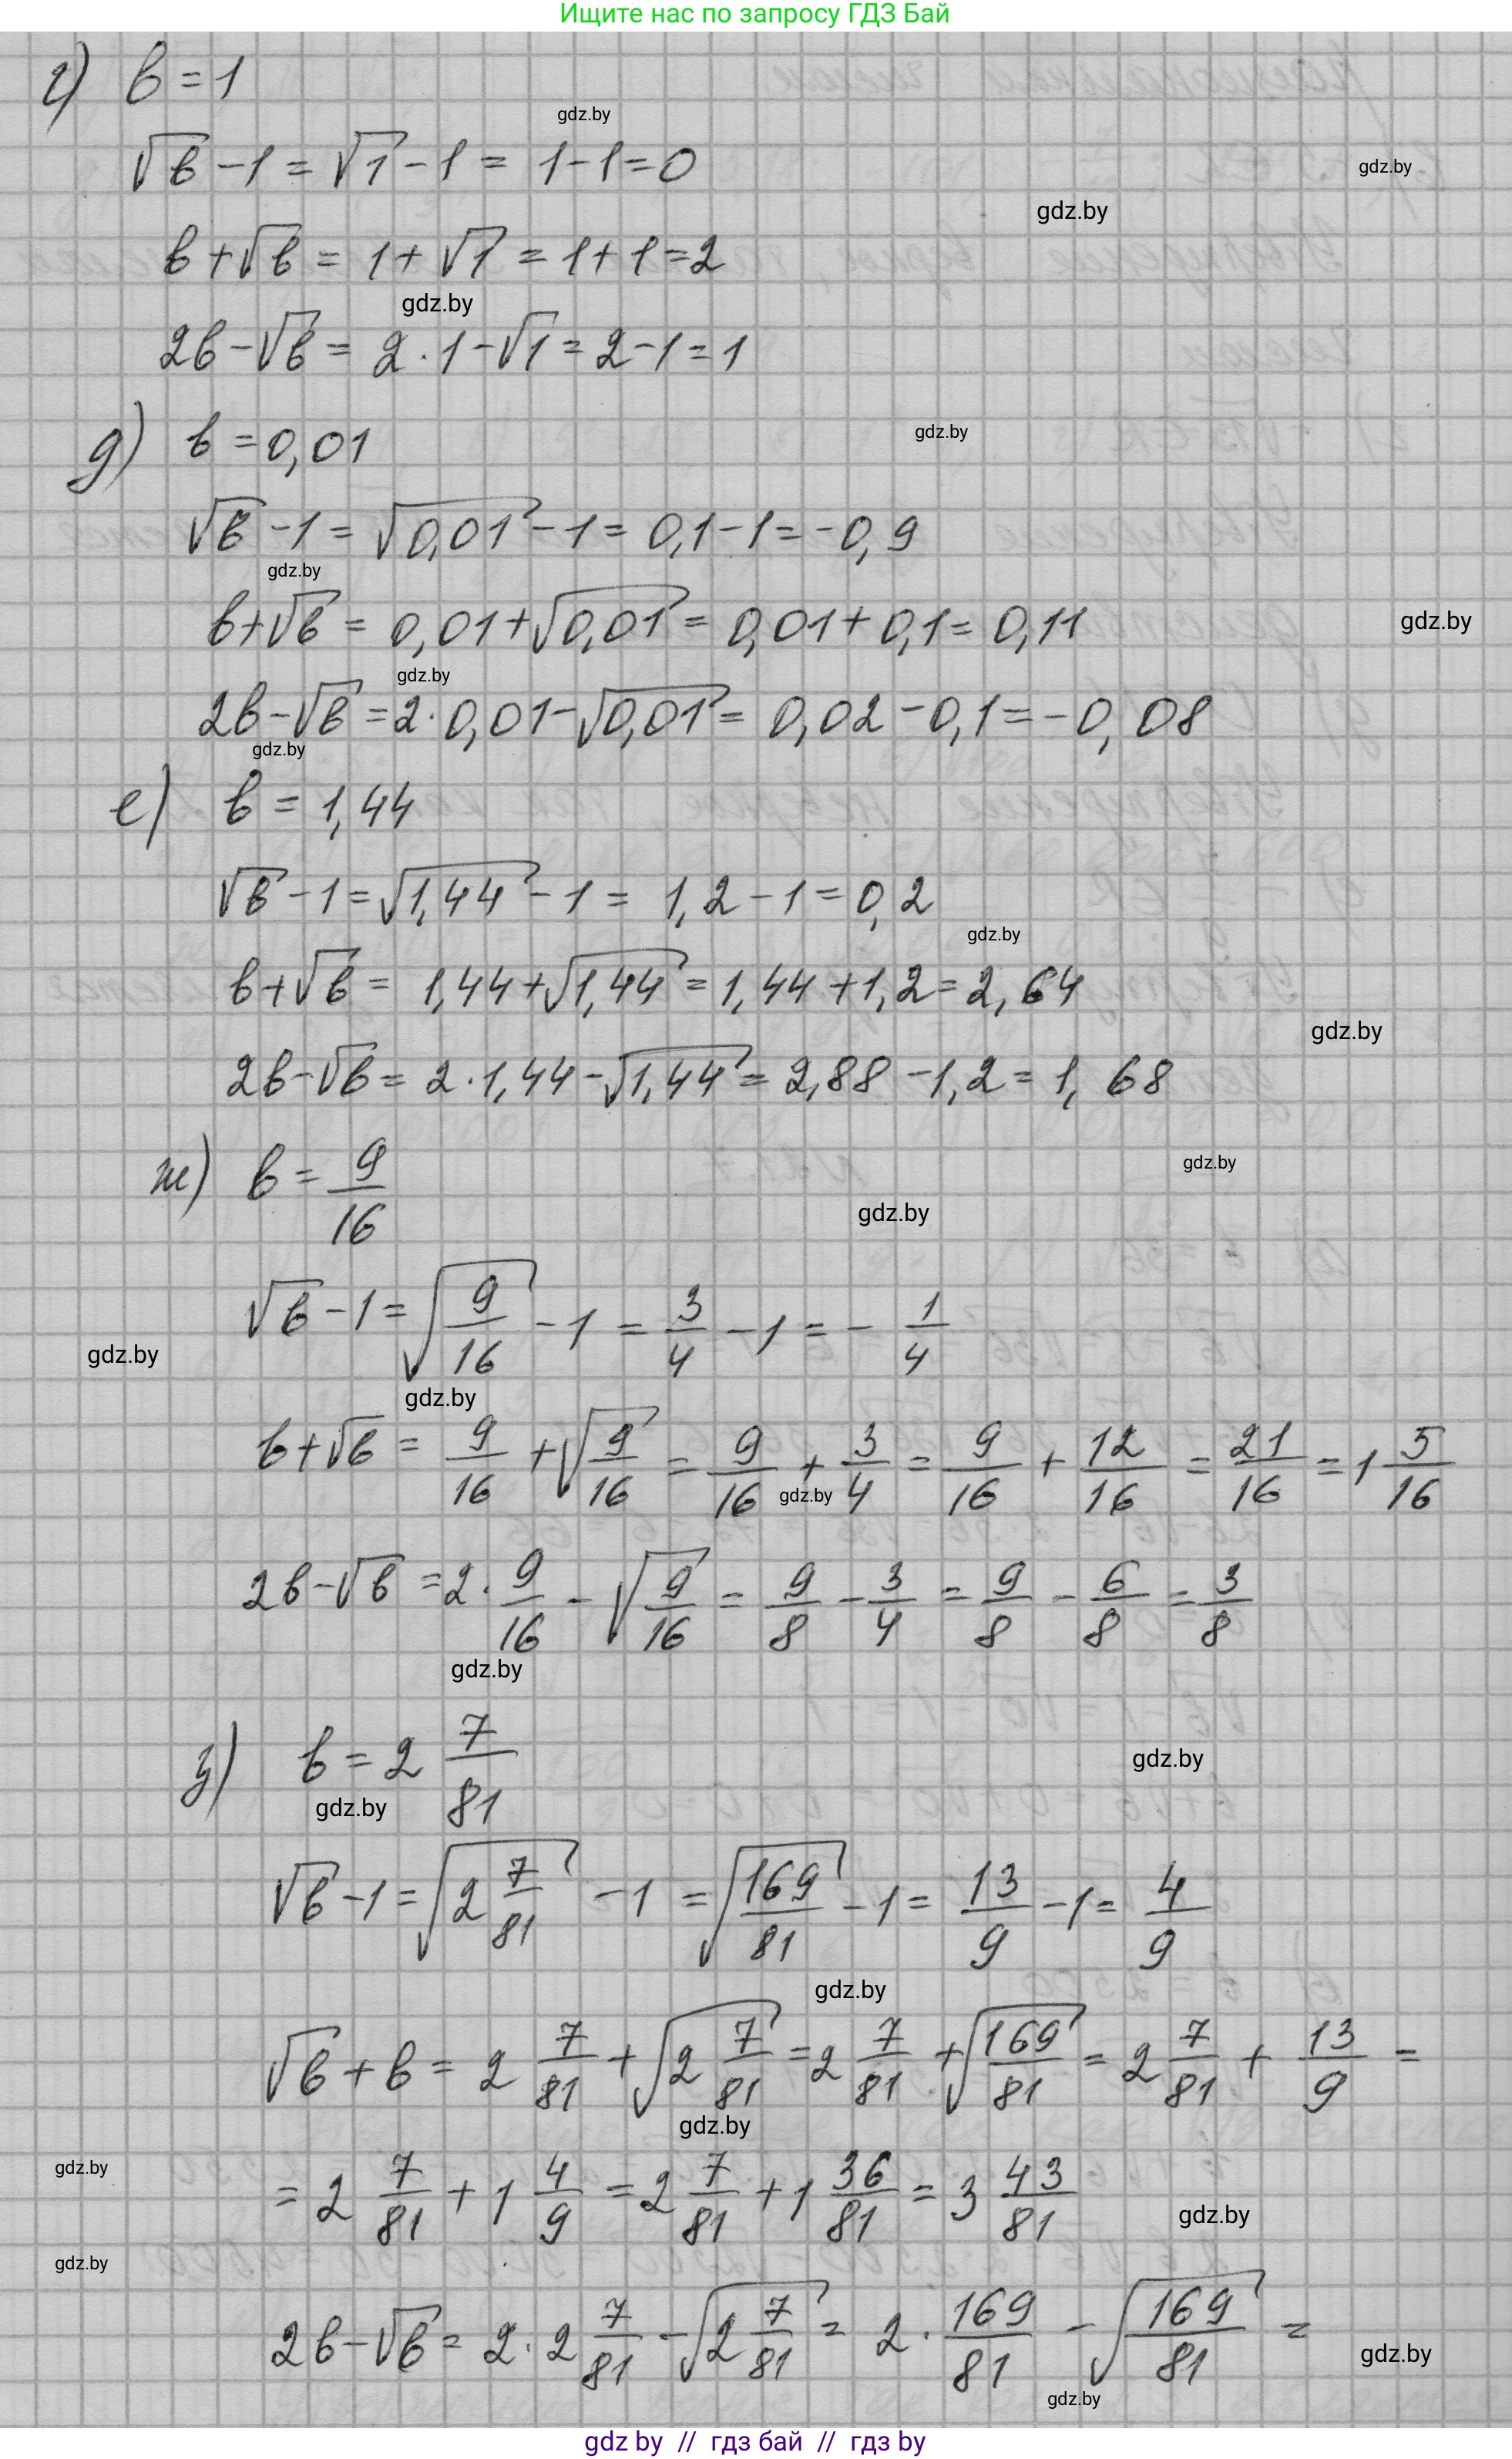 Ищите нас по запросу ГДЗ Бай
г) b = 1
gdz.by
√b - 1 = √1 - 1 = 1 - 1 = 0
gdz.by
gdz.by
b + √b = 1 + √1 = 1 + 1 = 2
gdz.by
2b - √b = 2 · 1 - √1 = 2 - 1 = 1
д) b = 0,01
gdz.by
√b - 1 = √0,01 - 1 = 0,1 - 1 = -0,9
gdz.by
b + √b = 0,01 + √0,01 = 0,01 + 0,1 = 0,11
gdz.by
gdz.by
2b - √b = 2 · 0,01 - √0,01 = 0,02 - 0,1 = -0,08
gdz.by
е) b = 1,44
√b - 1 = √1,44 - 1 = 1,2 - 1 = 0,2
gdz.by
b + √b = 1,44 + √1,44 = 1,44 + 1,2 = 2,64
gdz.by
2b - √b = 2 · 1,44 - √1,44 = 2,88 - 1,2 = 1,68
gdz.by
ж) b = 9/16
gdz.by
√b - 1 = √(9/16) - 1 = 3/4 - 1 = - 1/4
gdz.by
gdz.by
b + √b = 9/16 + √(9/16) = 9/16 + 3/4 = 9/16 + 12/16 = 21/16 = 1 5/16
gdz.by
2b - √b = 2 · 9/16 - √(9/16) = 9/8 - 3/4 = 9/8 - 6/8 = 3/8
gdz.by
з) b = 2 7/81
gdz.by
gdz.by
√b - 1 = √(2 7/81) - 1 = √(169/81) - 1 = 13/9 - 1 = 4/9
gdz.by
√b + b = 2 7/81 + √(2 7/81) = 2 7/81 + √(169/81) = 2 7/81 + 13/9 =
gdz.by
gdz.by
= 2 7/81 + 1 4/9 = 2 7/81 + 1 36/81 = 3 43/81
gdz.by
gdz.by
2b - √b = 2 · 2 7/81 - √(2 7/81) = 2 · 169/81 - √(169/81) =
gdz.by
gdz.by
gdz by // гдз бай // гдз by